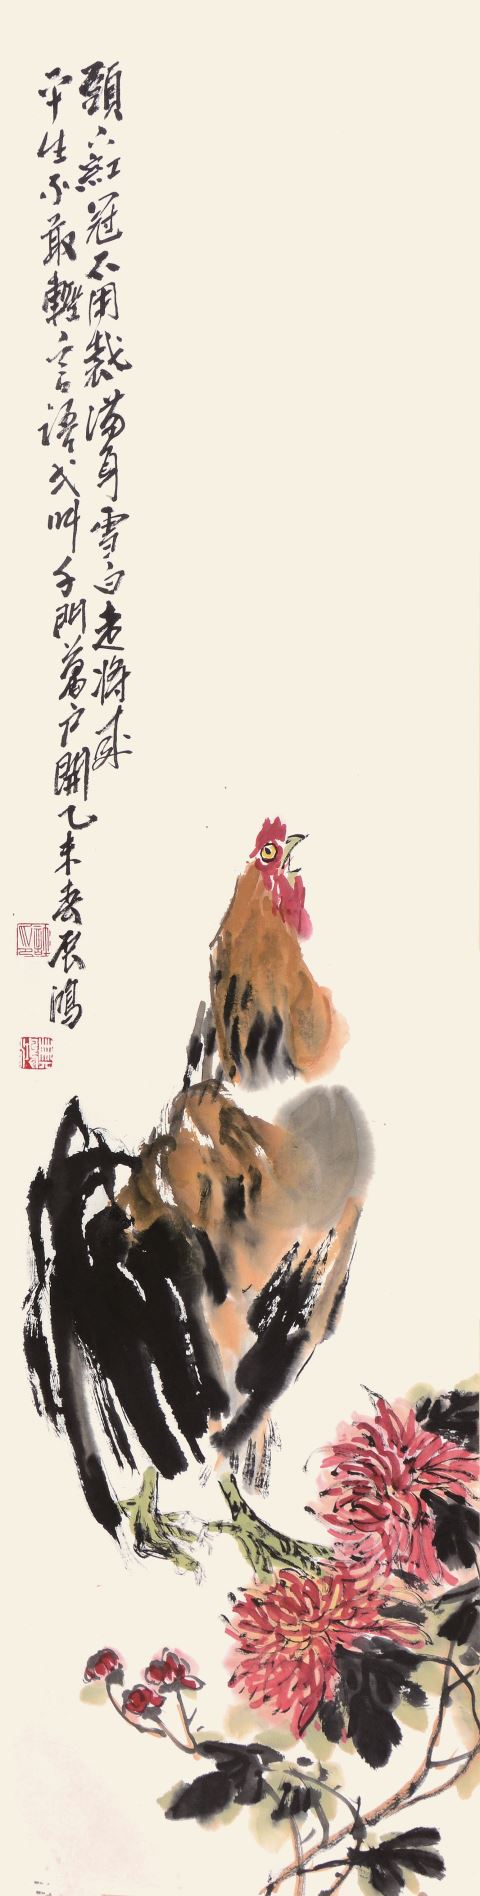 頭上紅冠不用裁滿身雪白走將來
平生不敢輕言語弌叫千門萬戶開乙未春展鴻